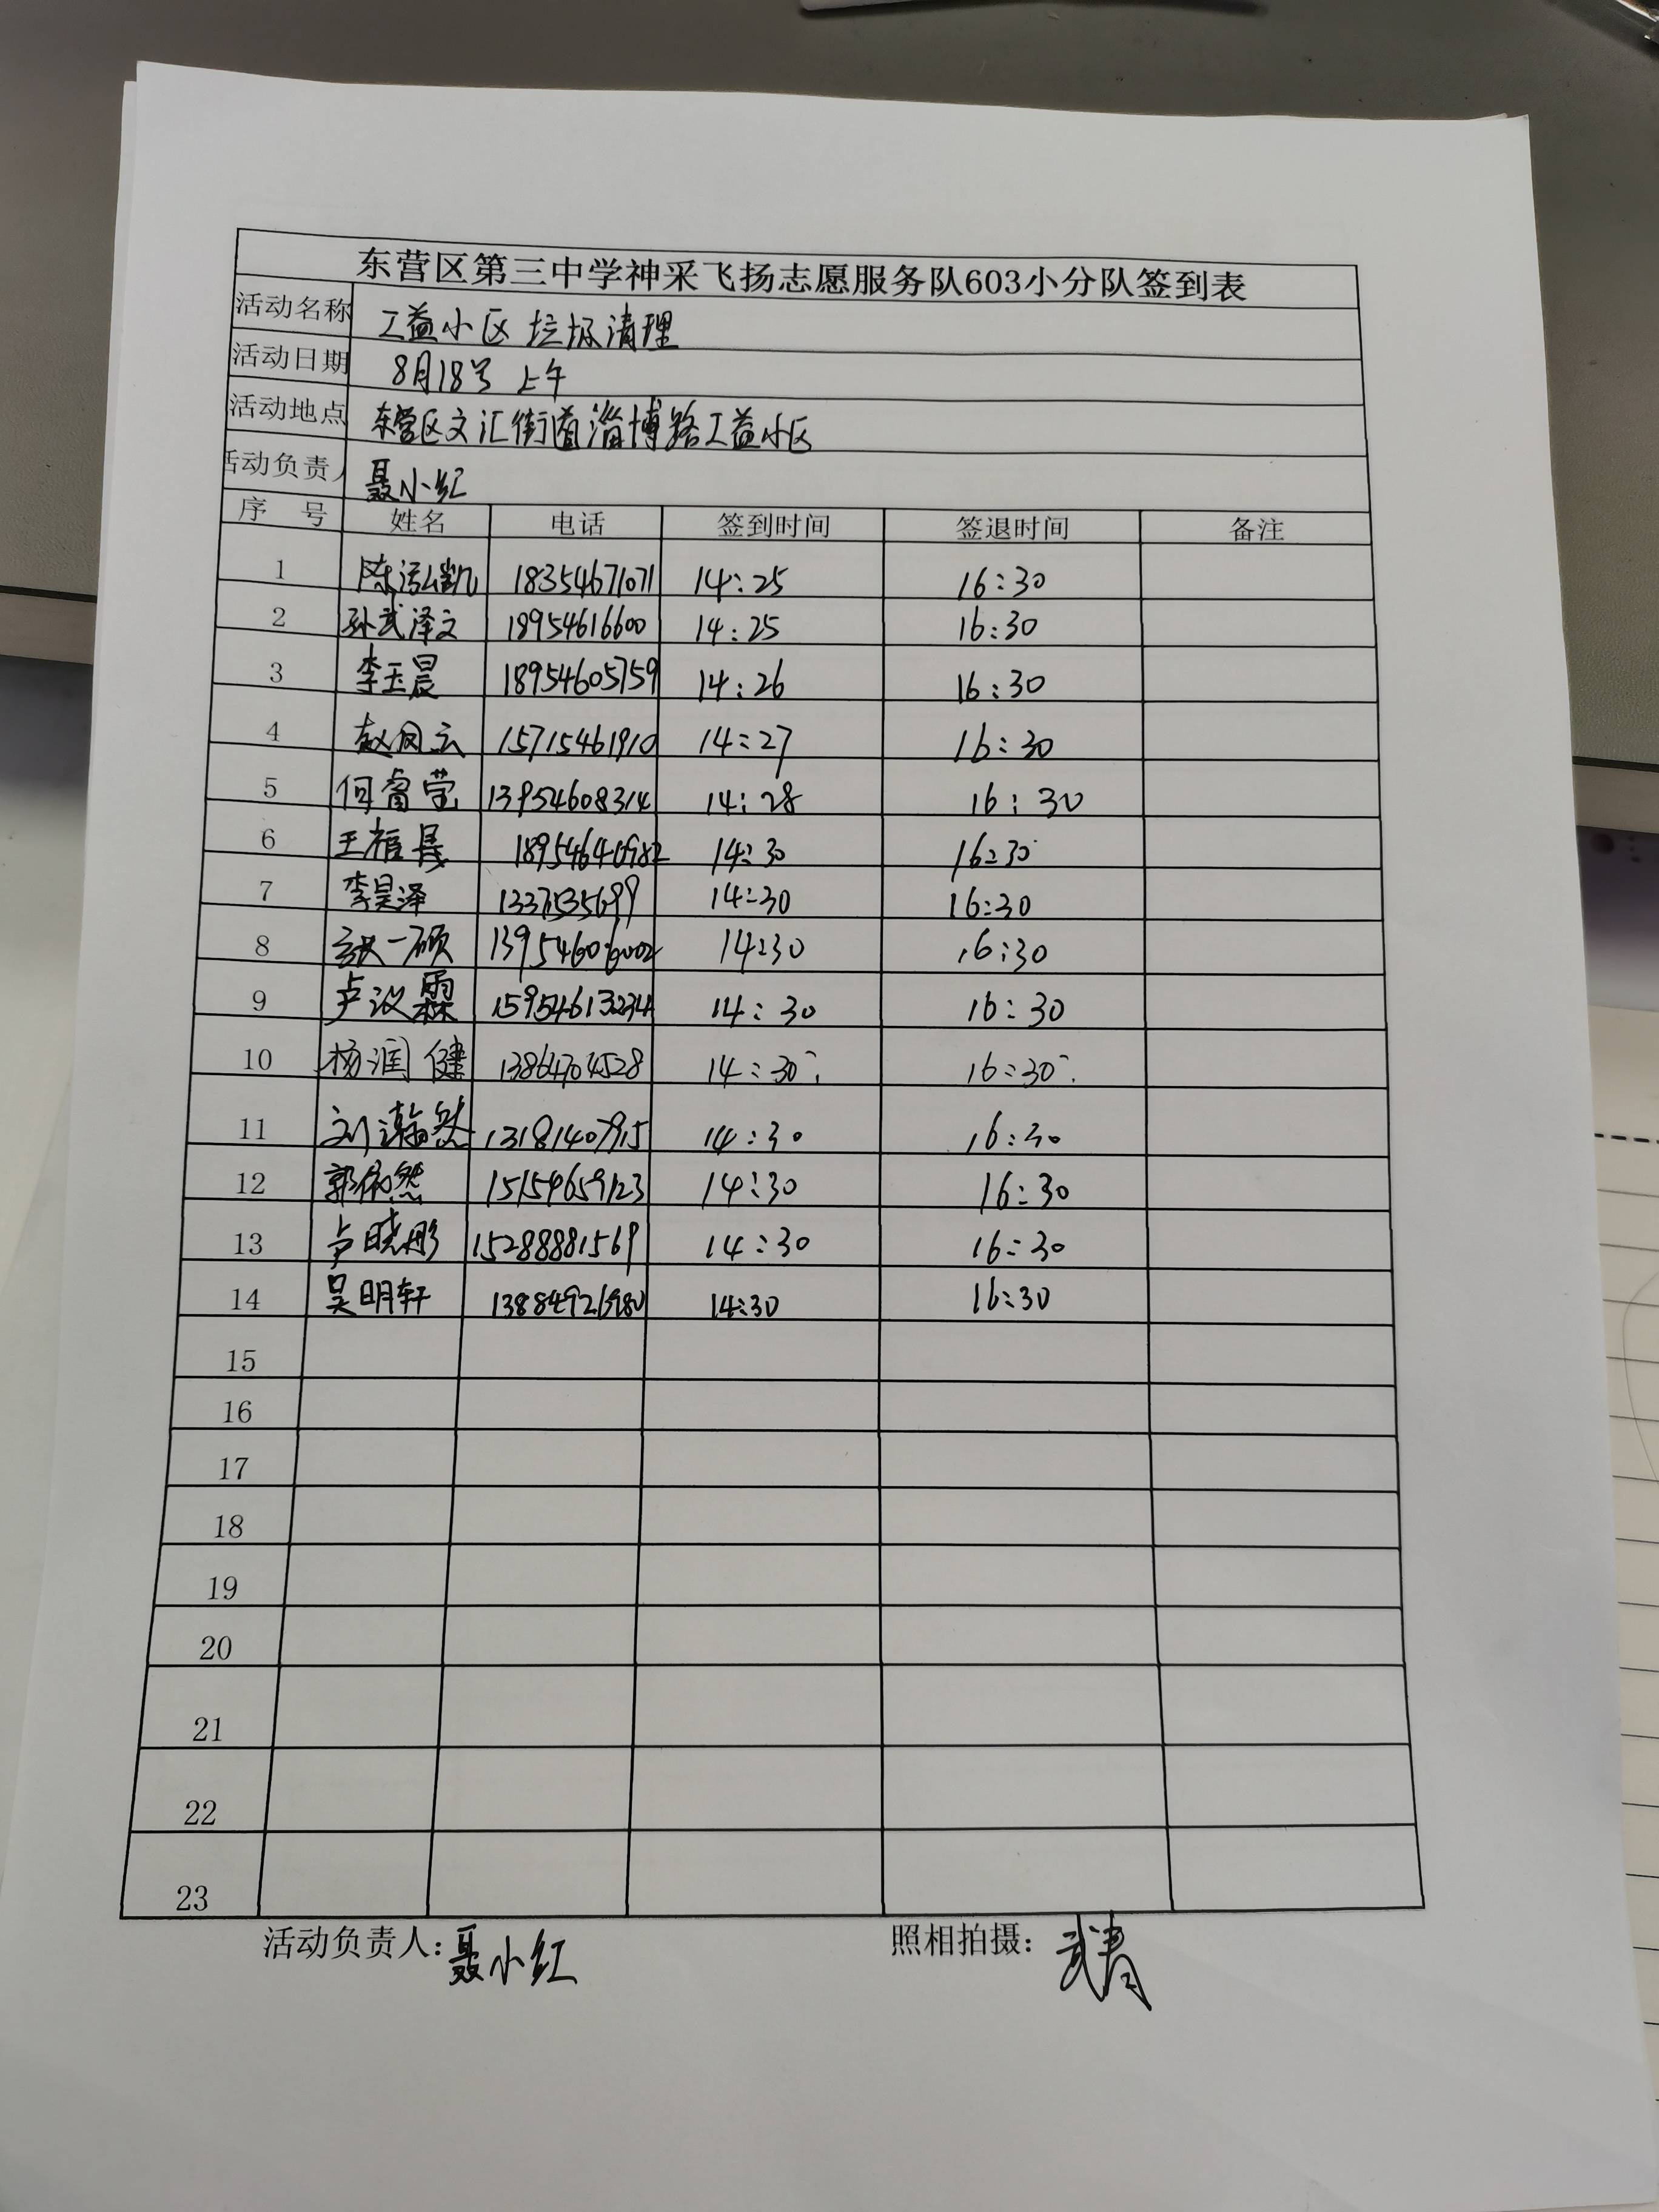 东营区第三中学神采飞扬志愿服务队603小分队签到表
活动名称 工益小区 垃圾清理
活动日期 8月18号 上午
活动地点 东营区文汇街道淄博路工益小区
活动负责人 聂小红
序 号 姓名 电话 签到时间 签退时间 备注
1 陈泓凯 18354671071 14:25 16:30
2 孙武泽文 18954616600 14:25 16:30
3 李玉晨 18954605759 14:26 16:30
4 赵凤云 15715461910 14:27 16:30
5 何睿莹 13954608314 14:28 16:30
6 王梓晟 14:30 16:30
7 李昊泽 14:30 16:30
8 张一硕 13954606002 14:30 16:30
9 卢汶霖 14:30 16:30
10 杨润健 13864704528 14:30 16:30
11 刘瀚然 13181407915 14:30 16:30
12 郭依然 15154659123 14:30 16:30
13 卢晓彤 15288881569 14:30 16:30
14 吴明轩 14:30 16:30
15
16
17
18
19
20
21
22
23
活动负责人:聂小红 照相拍摄: 武青